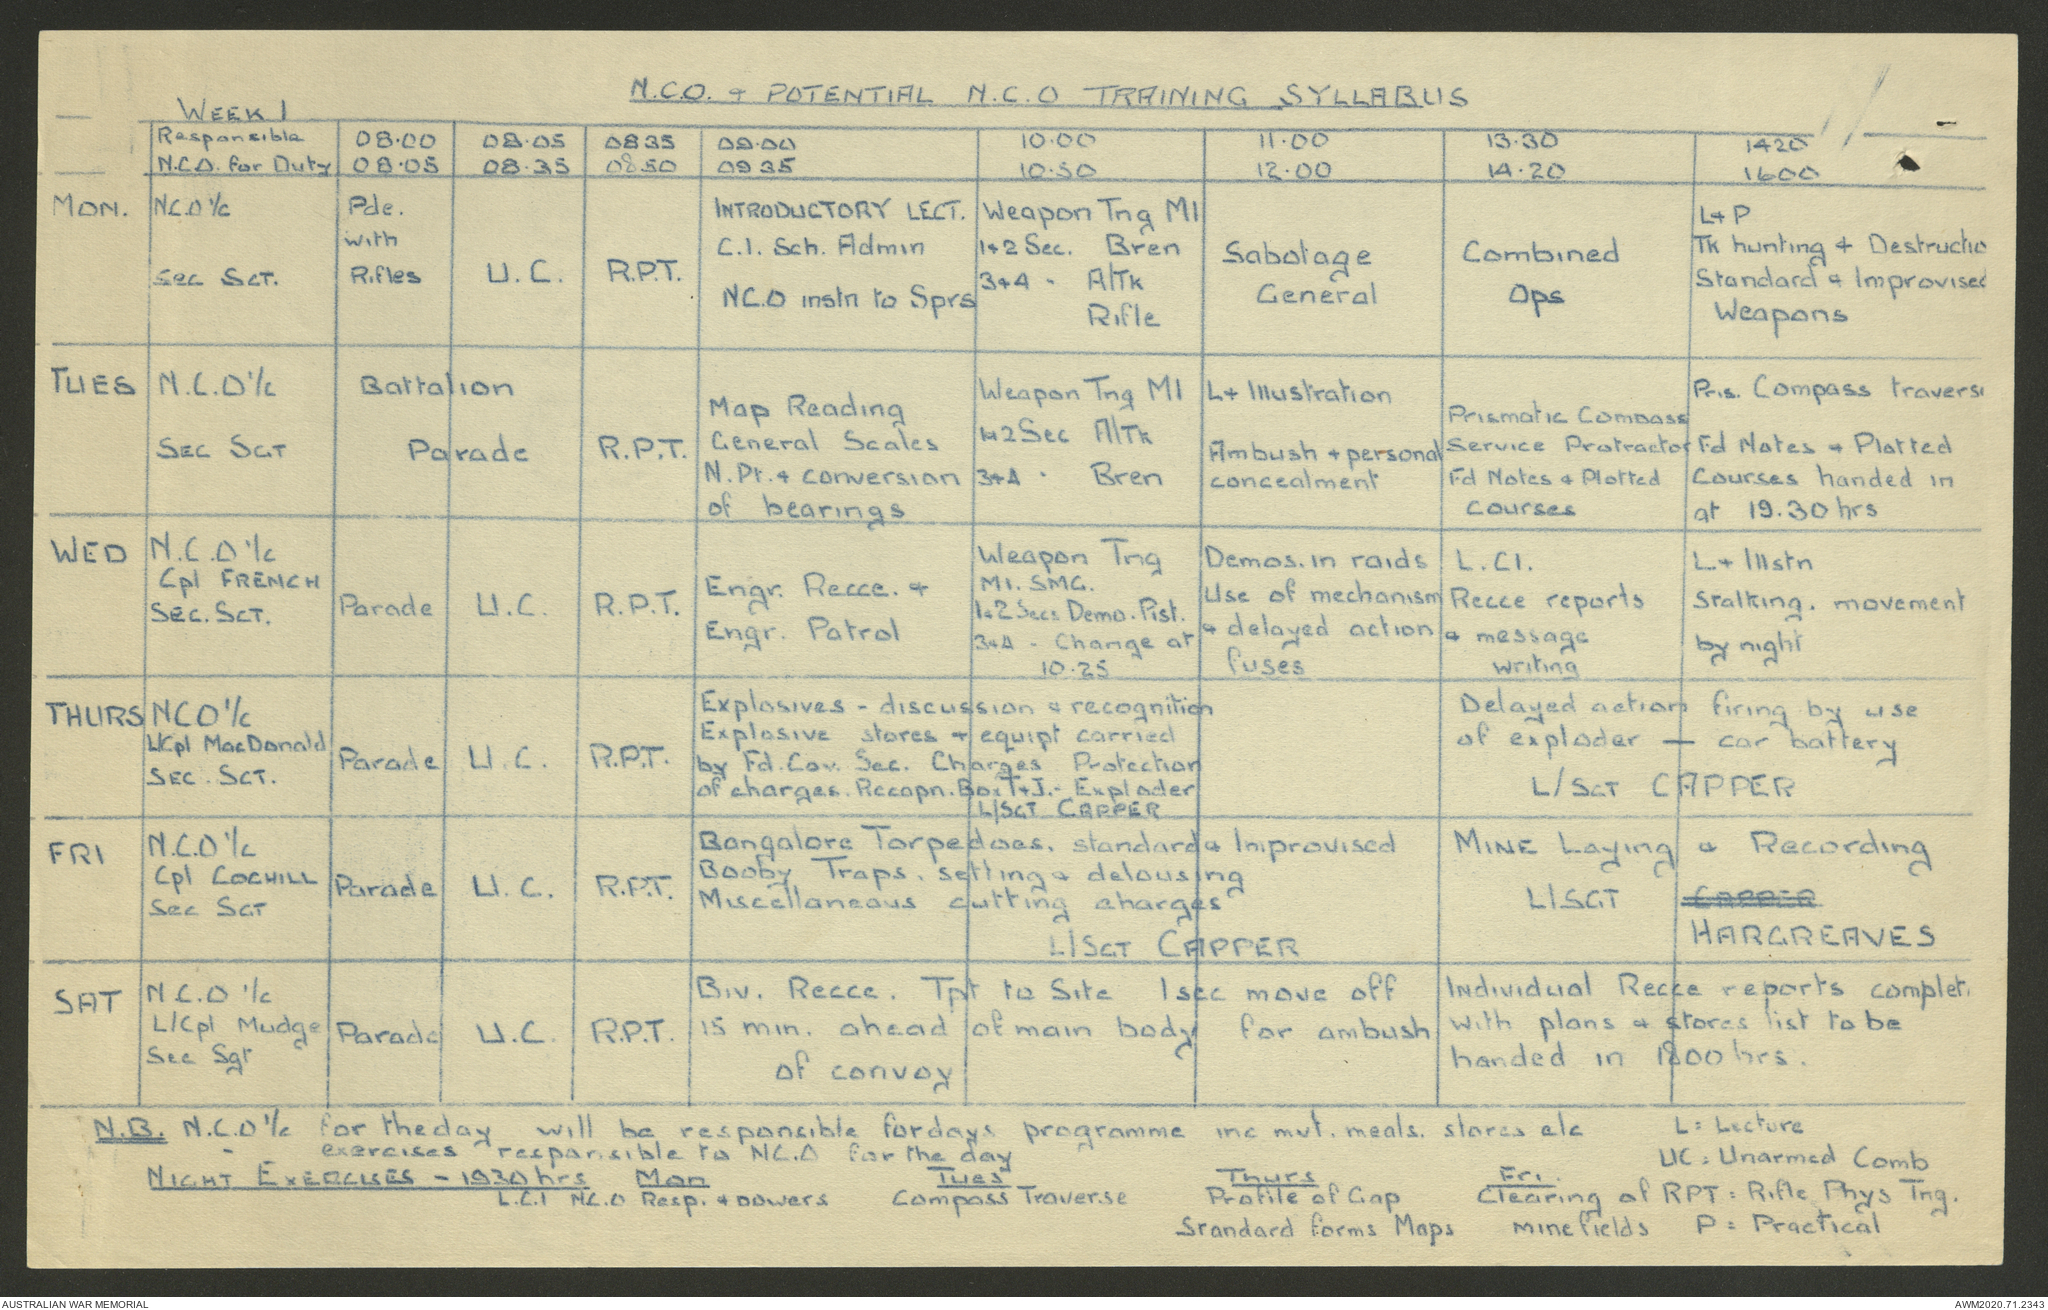 N.C.O. + POTENTIAL N.C.O TRAINING SYLLABUS
WEEK 1
Responsible N.C.O. for Duty
08.00 08.05
08.05 08.35
0835 0850
09.00 0935
10.00 10.50
11.00 12.00
13.30 14.20
1420 1600
MON.
N.C.O i/c
Sec Sgt.
Pde.
with
Rifles
U.C.
R.P.T.
INTRODUCTORY LECT.
C.I. Sch. Admin
N.C.O instn to Sprs
Weapon Tng M1
1+2 Sec. Bren
3+4 " A/Tk
Rifle
Sabotage
General
Combined
Ops
L+P
Tk hunting + Destructio
Standard + Improvised
Weapons
TUES
N.C.O i/c
Sec Sgt
Battalion
Parade
R.P.T.
Map Reading
General Scales
N.Pt. + conversion
of bearings
Weapon Tng M1
1+2 Sec A/Tk
3+4 " Bren
L+ Illustration
Ambush + personal
concealment
Prismatic Compass
Service Protractor
Fd Notes + Plotted
Courses
Pris. Compass travers
Fd Notes + Plotted
Courses handed in
at 19.30 hrs
WED
N.C.O i/c
Cpl FRENCH
Sec. Sgt.
Parade
U.C.
R.P.T.
Engr. Recce. +
Engr. Patrol
Weapon Tng
M1. SMG.
1+2 Secs Demo. Pist.
3+4 - Change at
10.25
Demos. in raids
Use of mechanism
+ delayed action
fuses
L.C1.
Recce reports
+ message
writing
L.+ Illstn
Stalking. movement
by night
THURS
NCO i/c
L/Cpl MacDonald
Sec. Sgt.
Parade
U.C.
R.P.T.
Explosives - discussion + recognition
Explosive stores + equipt carried
by Fd. Coy. Sec. Charges Protection
of charges. Recogn. Box T+J. - Exploder
L/Sgt CAPPER
Delayed action firing by use
of exploder — car battery
L/Sgt CAPPER
FRI
N.C.O i/c
Cpl COGHILL
Sec Sgt
Parade
U.C.
R.P.T.
Bangalore Torpedoes. standard + Improvised
Booby Traps. setting + delousing
Miscellaneous cutting charges
L/Sgt CAPPER
MINE Laying + Recording
L/SGT CAPPER
HARGREAVES
SAT
N.C.O i/c
L/Cpl Mudge
Sec Sgt
Parade
U.C.
R.P.T.
Biv. Recce. Tpt to Site 1 sec move off
15 min. ahead of main body for ambush
of convoy
Individual Recce reports complet.
with plans + stores list to be
handed in 1800 hrs.
N.B. N.C.O i/c for the day will be responsible for days programme inc mvt. meals. stores etc
exercises responsible to N.C.O for the day
L = Lecture
UC = Unarmed Comb
RPT = Rifle Phys Tng.
P = Practical
NIGHT EXERCISES - 1930 hrs
Mon
L.C.1 N.C.O Resp. + powers
Tues
Compass Traverse
Thurs
Profile of Gap
Standard forms Maps
Fri.
Clearing of
minefields
AUSTRALIAN WAR MEMORIAL
AWM2020.71.2343